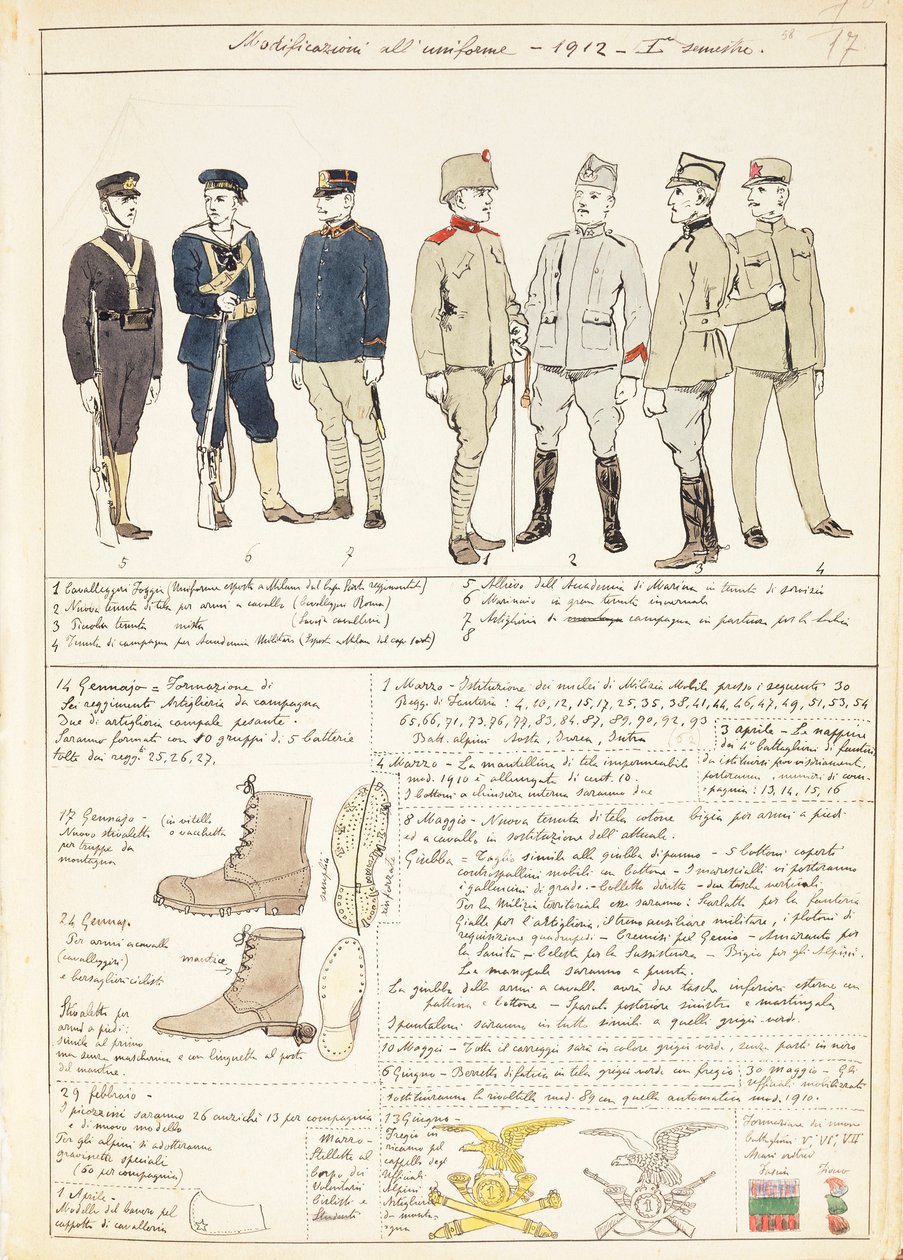 58 17
Modificazioni all'uniforme - 1912 - I° semestre.
5 6 7 1 2 3 4
1 Cavalleggeri Foggia (Uniforme esposta a Milano dal Cap. Sarto reggimentale)
2 Nuova tenuta di tela per armi a cavallo (Cavalleggeri Roma)
3 Piccola tenuta mista (Savoia cavalleria)
4 Tenuta di campagna per Accademia Militare (Esposta a Milano dal cap. sarto)
5 Allievo dell'Accademia di Marina in tenuta di servizio
6 Marinaio in gran tenuta invernale
7 Artigliere da campagna in partenza per la Libia
8
14 Gennajo = Formazione di
Sei reggimenti Artiglieria da campagna
Due di artiglieria campale pesante.
Saranno formati con 10 gruppi di 5 batterie
tolte dai regg.ti 25, 26, 27.
17 Gennajo - (in vitello
o vacchetta
Nuovo stivaletto
per truppe da
montagna
semplice
rinforzate
24 Gennajo.
Per armi a cavallo
(cavalleggeri)
e bersaglieri ciclisti
mastice
Stivaletti per
armi a piedi:
simile al primo
ma senza mascherina e con linguetta al posto
del mastice.
29 febbraio -
I picozzini saranno 26 anziché 13 per compagnia
e di nuovo modello
Per gli alpini si adotteranno
gravinette speciali
(60 per compagnia)
1 Aprile -
Modello del bavero pel
cappotto di cavalleria
Marzo -
Stellette al
Corpo dei
Volontari
Ciclisti e
Studenti
1 Marzo - Istituzione dei nuclei di Milizia Mobile presso i seguenti 30
Regg. di Fanteria: 4, 10, 12, 15, 17, 25, 35, 38, 41, 44, 46, 47, 49, 51, 53, 54
65, 66, 71, 73, 76, 77, 83, 84, 87, 89, 90, 92, 93
Batt. alpini Aosta, Ivrea, Intra (52)
3 aprile - Le nappine
dei 4° battaglioni di fanteria
da istituirsi provvisoriamente,
porteranno i numeri di com-
pagnia: 13, 14, 15, 16
4 Marzo - La mantellina di tela impermeabile
mod. 1910 è allungata di cent. 10.
I bottoni a chiusura interna saranno due
8 Maggio - Nuova tenuta di tela cotone bigia per armi a piedi
ed a cavallo, in sostituzione dell'attuale.
Giubba = Taglio simile alla giubba di panno - 5 bottoni coperti
controspallini mobili con bottone - I marescialli vi porteranno
i galloncini di grado. - Colletto diritto - due tasche verticali
Per la Milizia territoriale esse saranno: Scarlatta per la fanteria
Gialle per l'artiglieria, il treno ausiliare militare, i plotoni di
requisizione quadrupedi - Cremisi pel Genio - Amaranto per
la Sanità - Celeste per la Sussistenza - Bigio per gli Alpini.
Le manopole saranno a punta.
La giubba delle armi a cavall. avrà due tasche inferiori esterne con
pattina e bottone - Sparato posteriore sinistro e martingala
I pantaloni saranno in tutto simili a quelli grigio verde.
10 Maggio - Tutto il carreggio sarà in colore grigio verde, senza parti in nero
6 Giugno - Berretto di fatica in tela grigio verde con fregio
30 maggio - Gli
ufficiali mobilizzati
sostituiranno la rivoltella mod. 89 con quella automatica mod. 1910.
13 Giugno -
Fregio in
ricamo pel
cappello degli
Ufficiali
Alpini ed
Artiglieria
da monta-
gna
1
1
Formazione dei nuovi
battaglioni V, VI, VII
Ascari eritrei
Fascia Fiocco